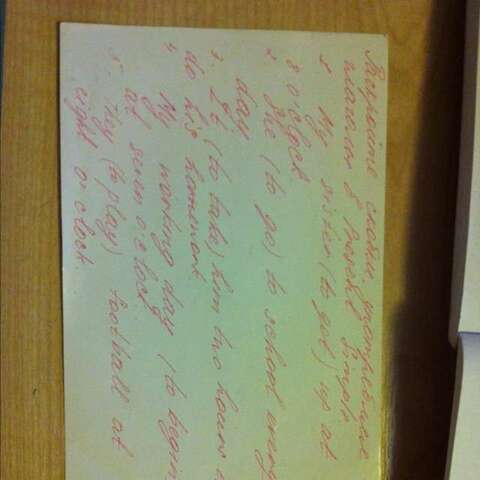 Раскройте скобки, употребляя
глагол в Present Simple
1. My sister (to get) up at
8 o'clock.
2. She (to go) to school every
day.
3. It (to take) him two hours
do his homework.
4. My working day (to begin
at seven o'clock
5. They (to play) football at
eight o'clock.